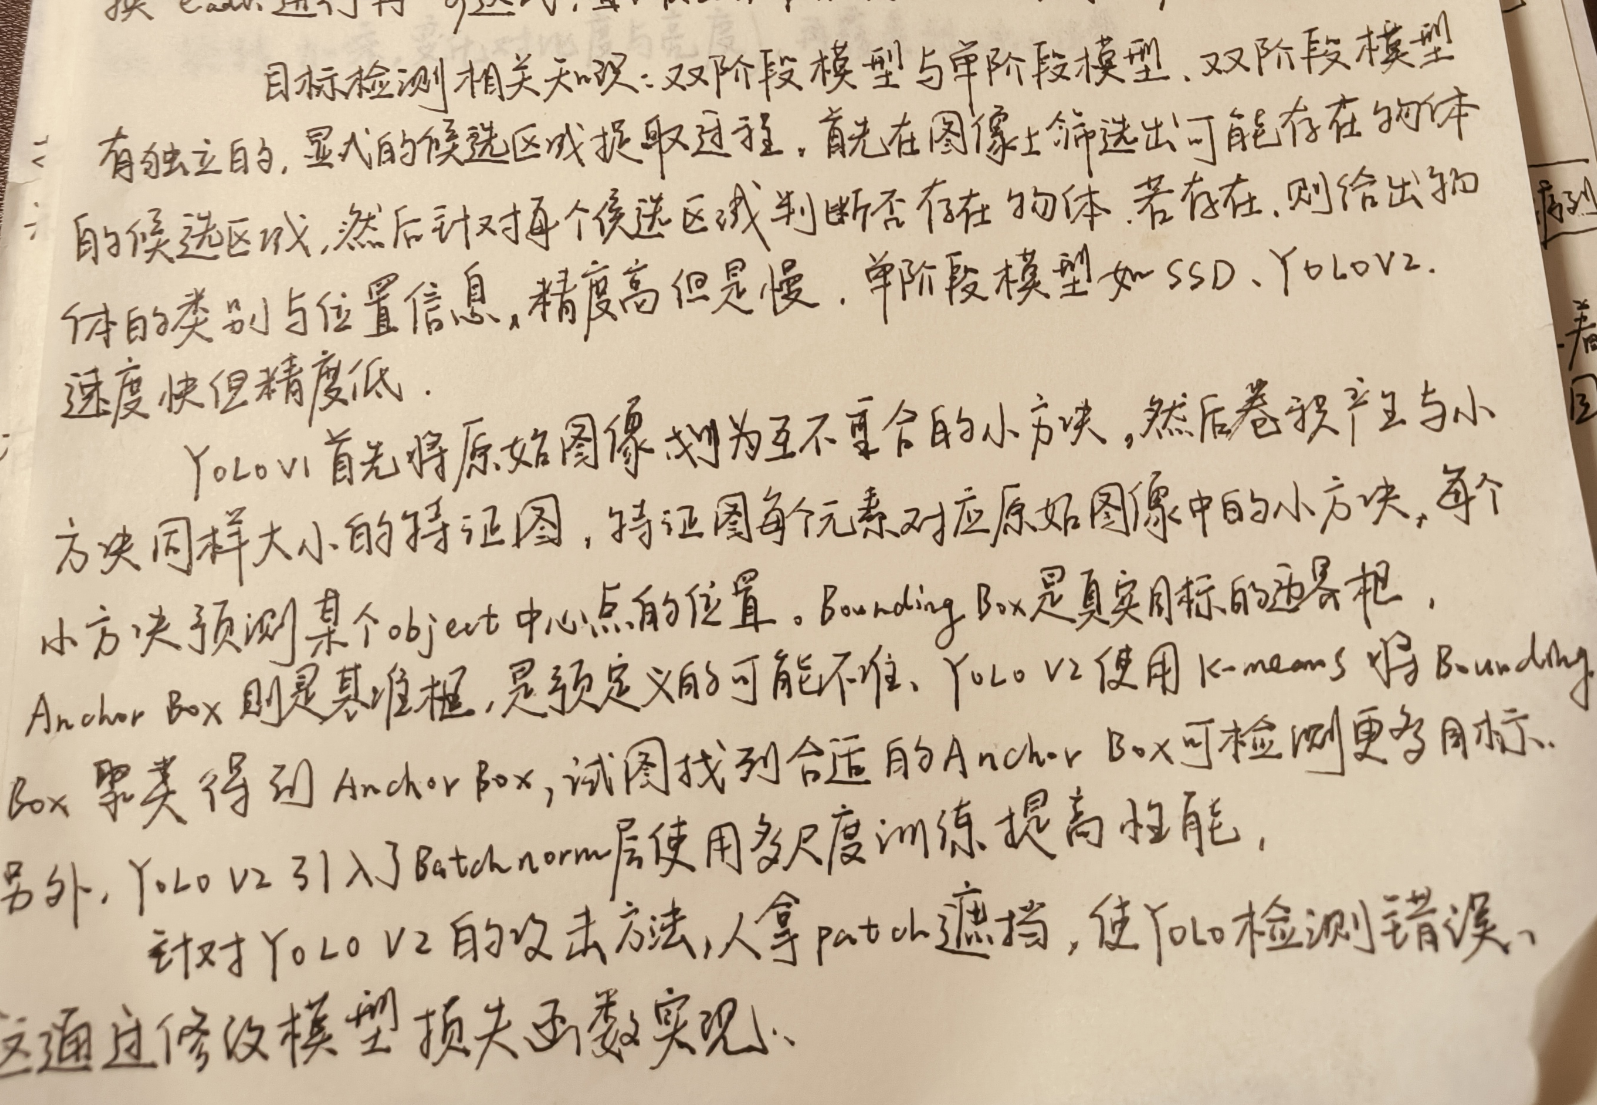 目标检测相关知识：双阶段模型与单阶段模型、双阶段模型
有独立的，显式的候选区域提取过程，首先在图像上筛选出可能存在物体
的候选区域，然后针对每个候选区域判断否存在物体，若存在，则给出物
体的类别与位置信息，精度高但是慢．单阶段模型如SSD、YOLOV2．
速度快但精度低．
YOLOV1首先将原始图像划为互不重合的小方块，然后卷积产生与小
方块同样大小的特征图，特征图每个元素对应原始图像中的小方块，每个
小方块预测某个object中心点的位置。Bounding Box是真实目标的边界框，
Anchor Box则是基准框，是预定义的可能不准、YOLO V2使用K-means将Bounding
Box聚类得到Anchor Box，试图找到合适的Anchor Box可检测更多目标．
另外，YOLO V2引入了Batchnorm层使用多尺度训练提高性能，
针对YOLO V2的攻击方法，人拿patch遮挡，使YOLO检测错误、
这通过修改模型损失函数实现、
序列